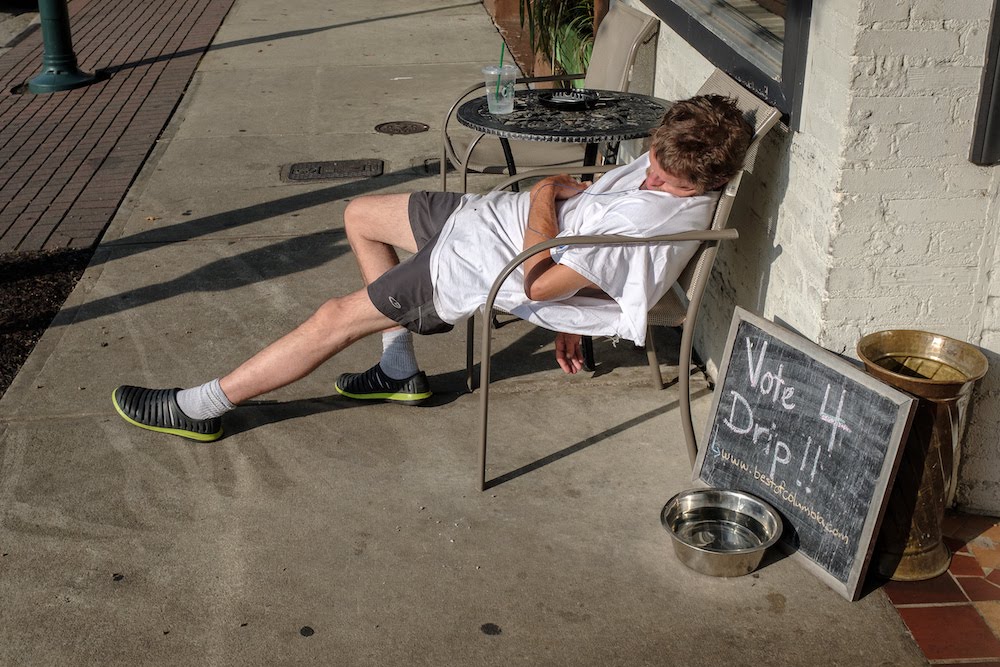 Vote 4
Drip!!
www.bestofcolumbia.com